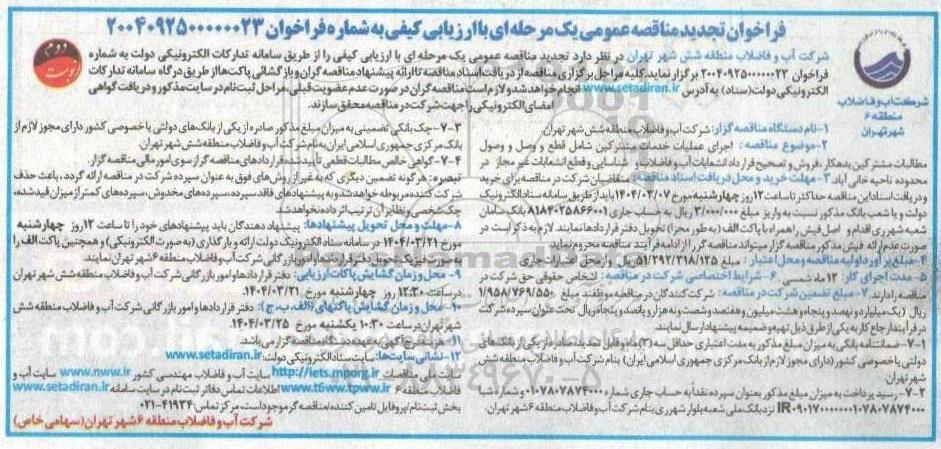 فراخوان تجدید مناقصه عمومی یک مرحله ای با ارزیابی کیفی به شماره فراخوان ۲۰۰۴۰۹۲۵۰۰۰۰۰۰۲۳
نوبت دوم
شرکت آب و فاضلاب منطقه ۶ شهر تهران
شرکت آب و فاضلاب منطقه شش شهر تهران در نظر دارد تجدید مناقصه عمومی یک مرحله ای با ارزیابی کیفی را از طریق سامانه تدارکات الکترونیکی دولت به شماره
فراخوان ۲۰۰۴۰۹۲۵۰۰۰۰۰۰۲۳ برگزار نماید. کلیه مراحل برگزاری مناقصه از دریافت اسناد مناقصه تا ارائه پیشنهاد مناقصه گران و بازگشائی پاکت ها از طریق درگاه سامانه تدارکات
الکترونیکی دولت (ستاد) به آدرس www.setadiran.ir انجام خواهد شد و لازم است مناقصه گران در صورت عدم عضویت قبلی، مراحل ثبت نام در سایت مذکور و دریافت گواهی
امضای الکترونیکی را جهت شرکت در مناقصه محقق سازند.
۱-نام دستگاه مناقصه گزار: شرکت آب و فاضلاب منطقه شش شهر تهران.
۲-موضوع مناقصه: اجرای عملیات خدمات مشترکین شامل قطع و وصل و وصول
مطالبات مشترکین بدهکار، فروش و تصحیح قرارداد انشعابات آب و فاضلاب، شناسایی و قطع انشعابات غیر مجاز در
محدوده ناحیه خانی آباد. ۳-مهلت خرید و محل دریافت اسناد مناقصه: متقاضیان شرکت در مناقصه برای خرید
و دریافت اسناد این مناقصه حداکثر تا ساعت ۱۲ روز چهارشنبه مورخ ۱۴۰۴/۰۳/۰۷ باید از طریق سامانه ستاد الکترونیک
دولت و یا شعب بانک مذکور نسبت به واریز مبلغ ۳/۰۰۰/۰۰۰ ریال به حساب جاری ۸۱۸۴۰۲۵۸۶۶۰۰۱ بانک سامان
شعبه شهرری اقدام و اصل فیش را همراه با پاکت الف (به طور مجزا) تحویل دفتر قراردادها نمایند. لازم به ذکر است در
صورت عدم ارائه فیش مذکور مناقصه گزار میتواند مناقصه گر را از ادامه فرآیند مناقصه محروم نماید.
۴-مبلغ برآورد اولیه مناقصه و محل اعتبار: مبلغ ۵۱/۲۹۲/۳۱۸/۱۲۵ ریال و از محل اعتبارات جاری
۵-مدت اجرای کار: ۱۲ ماه شمسی ۶-شرایط اختصاصی شرکت در مناقصه: اشخاص حقوقی حق شرکت در
مناقصه را دارند. ۷-مبلغ تضمین شرکت در مناقصه: شرکت کنندگان در مناقصه موظفند مبلغ ۱/۹۵۸/۷۶۹/۵۵۰
ریال (یک میلیارد و نهصد و پنجاه و هشت میلیون و هفتصد و شصت و نه هزار و پانصد و پنجاه ریال) تحت عنوان سپرده شرکت
در فرآیند ارجاع کار به یکی از طرق ذیل تهیه و ضمیمه پیشنهاد ارسال نمایند.
۷-۱-ضمانتنامه بانکی به میزان مبلغ مذکور به مدت اعتباری حداقل سه (۳) ماه و قابل تمدید، صادره از یکی از بانک های
دولتی یا خصوصی کشور (دارای مجوز لازم از بانک مرکزی جمهوری اسلامی ایران) بنام شرکت آب و فاضلاب منطقه شش
شهر تهران.
۷-۲-رسید پرداخت به میزان مبلغ مذکور بعنوان سپرده نقداً به حساب جاری شماره ۰۱۰۷۸۰۷۸۷۴۰۰۰ و شماره شبا
IR۰۹۰۱۷۰۰۰۰۰۰۰۱۰۷۸۰۷۸۷۴۰۰۰ نزد بانک ملی شعبه بلوار شهرری بنام شرکت آب و فاضلاب منطقه ۶ شهر تهران.
۷-۳-چک بانکی تضمینی به میزان مبلغ مذکور صادره از یکی از بانک های دولتی یا خصوصی کشور دارای مجوز لازم از
بانک مرکزی جمهوری اسلامی ایران به نام شرکت آب و فاضلاب منطقه شش شهر تهران.
۷-۴-گواهی خالص مطالبات قطعی تأیید شده قراردادهای مناقصه گزار سوی امور مالی مناقصه گزار.
تبصره: هرگونه تضمین دیگری که به غیر از روش های فوق به عنوان سپرده شرکت در مناقصه ارائه گردد، باعث حذف
شرکت کننده مربوطه خواهد شد و به پیشنهادهای فاقد سپرده، سپرده های مخدوش، سپرده های کمتر از میزان قید شده،
چک شخصی و نظایر آن ترتیب اثر داده نخواهد شد.
۸-مهلت و محل تحویل پیشنهادها: پیشنهاد دهندگان باید پیشنهادهای خود را تا ساعت ۱۲ روز چهارشنبه
مورخ ۱۴۰۴/۰۳/۲۱ در سامانه ستاد الکترونیک دولت ارائه و بارگذاری (به صورت الکترونیکی) و همچنین پاکت الف را
به صورت فیزیک تحویل دفتر قراردادها و امور بازرگانی شرکت آب و فاضلاب منطقه ۶ شهر تهران نمایند.
۹- محل و زمان گشایش پاکات ارزیابی: دفتر قراردادها و امور بازرگانی شرکت آب و فاضلاب منطقه شش شهر تهران
در ساعت ۱۲:۳۰ روز چهارشنبه مورخ ۱۴۰۴/۰۳/۲۱.
۱۰- محل و زمان گشایش پاکتهای (الف، ب، ج): دفتر قراردادها و امور بازرگانی شرکت آب و فاضلاب منطقه شش
شهر تهران در ساعت ۱۰:۳۰ یکشنبه مورخ ۱۴۰۴/۰۳/۲۵.
۱۱- هزینه درج آگهی به عهده دستگاه مناقصه گزار می باشد.
۱۲-نشانی سایت ها: سایت ستاد الکترونیکی دولت: www.setadiran.ir
سایت ملی مناقصات http://iets.mporg.ir سایت آب و فاضلاب مهندسی کشور www.nww.ir سایت آب و
فاضلاب منطقه ۶ www.t6ww.tpww.ir اطلاعات تماس دفاتر ثبت نام در سایت سامانه www.setadiran.ir
بخش ثبت نام/پروفایل تامین کننده/مناقصه گر موجود است، مرکز تماس: ۴۱۹۳۴-۰۲۱
شرکت آب و فاضلاب منطقه ۶ شهر تهران (سهامی خاص)